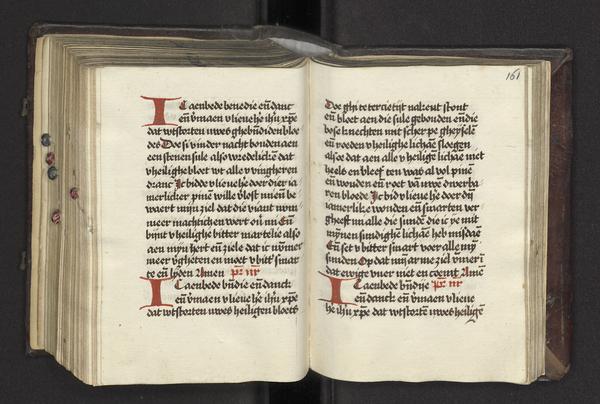 IC aenbede benedie en̄ danc
en̄ v̄maen v lieue he ih̄u xp̄e
dat wtstorten uwes ghebn̄diden bloe
des Doe si v in der nacht bonden aen
een stenen sule also wredelickē dat
v heilighe bloet wt alle v vingheren
dranc Ic bidde v lieue he doer dier ia
merlicker pinē wille v̄lost mi en̄ be
waert mijn ziel dat die viant nym
meer machtich en wert ou mi En̄
bijnt v heilighe bitter martelie also
aen mijn hert en̄ ziele dat ic nv̄mer
meer v̄gheten en moet v bitt' smar
te en̄ lyden Amen pr̄ nr̄
IC aenbede bn̄die en̄ danck
en̄ v̄maen v lieue he ih̄u xp̄e
dat wtstorten uwes heiligen bloets
161
Doe ghi te tercie tijt nakent stont
en̄ bloet aen die sule gebonden en̄ die
bose knechten mit scherpe gheyselē
en̄ roeden v heilighe lichāe sloegen
also dat aen alle v heiligē lichāe niet
heels en bleef ten was al vol pinē
en̄ wonden en̄ root vā uwē dwerba
ren bloede Ic bid v lieue he doer dij
iamerlike wonden en̄ smarten ver
gheeft mi alle die sundē die ic ye mit
mynen sundighē lichāe heb misdaē
En̄ set v bitter smart voer alle mÿ
sunden Op dat mij arme ziel v̄m̄er ī
dat ewige vuer niet en coemt Amē
IC aenbede bn̄dye pr̄ nr̄
en̄ danck en̄ v̄maen v lieue
he ih̄u xp̄e dat wtstortē uwes heiligē